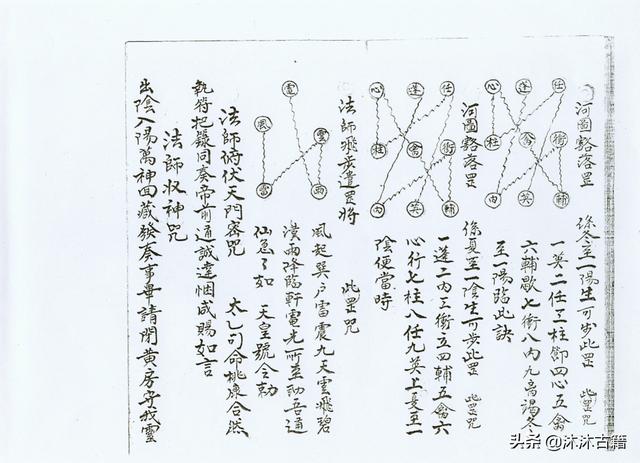 河圖豁落罡
心 蓬 任
柱 禽 衝
內 英 輔
係冬至一陽生可步此罡 此罡咒
一英二任三柱節四心五禽
六輔歇七衝八內九离謁冬
至一陽臨此訣
河圖豁落罡
心 蓬 任
柱 禽 衝
內 英 輔
係夏至一陰生可步此罡 此罡咒
一蓬二內三衝五四輔五禽六
心行七柱八任九英上夏至一
陰便當時
法師飛步遣罡將 此罡咒
電
風 雲
雷 雨
風起巽戶雷震九天雲飛碧
漢雨降臨軒電光所至助吾通
仙急了如 天皇號令勅
法師俯伏天門密咒 太乙司命桃康合然
執符把籙同奏帝前通誠達悃咸賜如言
法師收神咒
出陰入陽萬神回藏發奏事畢請閉黃房守我靈
头条 @沐沐古籍